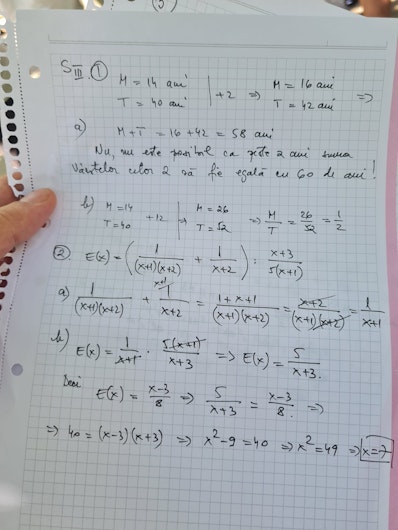 S III. ① M = 14 ani | + 2 => M = 16 ani =>
T = 40 ani | T = 42 ani
a) M + T = 16 + 42 = 58 ani
Nu, nu este posibil ca peste 2 ani suma
vârstelor celor 2 să fie egală cu 60 de ani!
b) M = 14 | + 12 | => M = 26 => M/T = 26/52 = 1/2
T = 40 | T = 52
② E(x) = (1/((x+1)(x+2)) + 1/(x+2)) : (x+3)/(5(x+1))
a) 1/((x+1)(x+2)) + x+1) 1/(x+2) = (1+x+1)/((x+1)(x+2)) = (x+2)/((x+1)(x+2)) = 1/(x+1)
b) E(x) = 1/(x+1) · 5(x+1)/(x+3) => E(x) = 5/(x+3).
Deci E(x) = (x-3)/8 => 5/(x+3) = (x-3)/8. =>
=> 40 = (x-3)(x+3) => x² - 9 = 40 => x² = 49 => x = 7